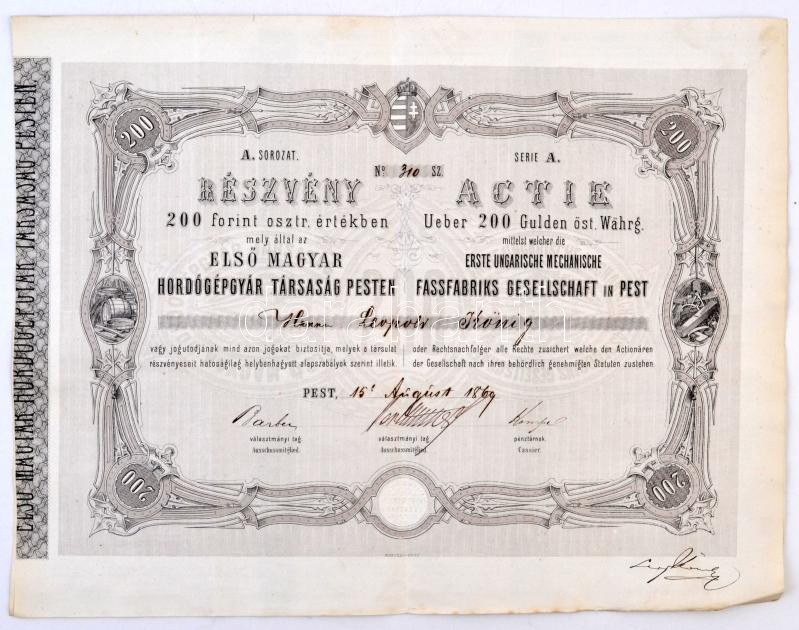 ELSŐ MAGYAR HORDÓGÉPGYÁR TÁRSASÁG PESTEN
200
200
A. SOROZAT.
Nº 310 SZ.
SERIE A.
RÉSZVÉNY
200 forint osztr. értékben
mely által az
ELSŐ MAGYAR
HORDÓGÉPGYÁR TÁRSASÁG PESTEN
ACTIE
Ueber 200 Gulden öst. Währg.
mittelst welcher die
ERSTE UNGARISCHE MECHANISCHE
FASSFABRIKS GESELLSCHAFT IN PEST
Herrn Leopold König
vagy jogutodjának mind azon jogokat biztositja, melyek a társulat
részvényeseit hatoságilag helybenhagyott alapszabályok szerint illetik.
oder Rechtsnachfolger alle Rechte zusichert welche den Actionären
der Gesellschaft nach ihren behördlich genehmigten Statuten zustehen.
PEST, 15t August 1869
Barber
választmányi tag.
Ausschussmitglied.
választmányi tag.
Ausschussmitglied.
pénztárnok.
Cassier.
200
200